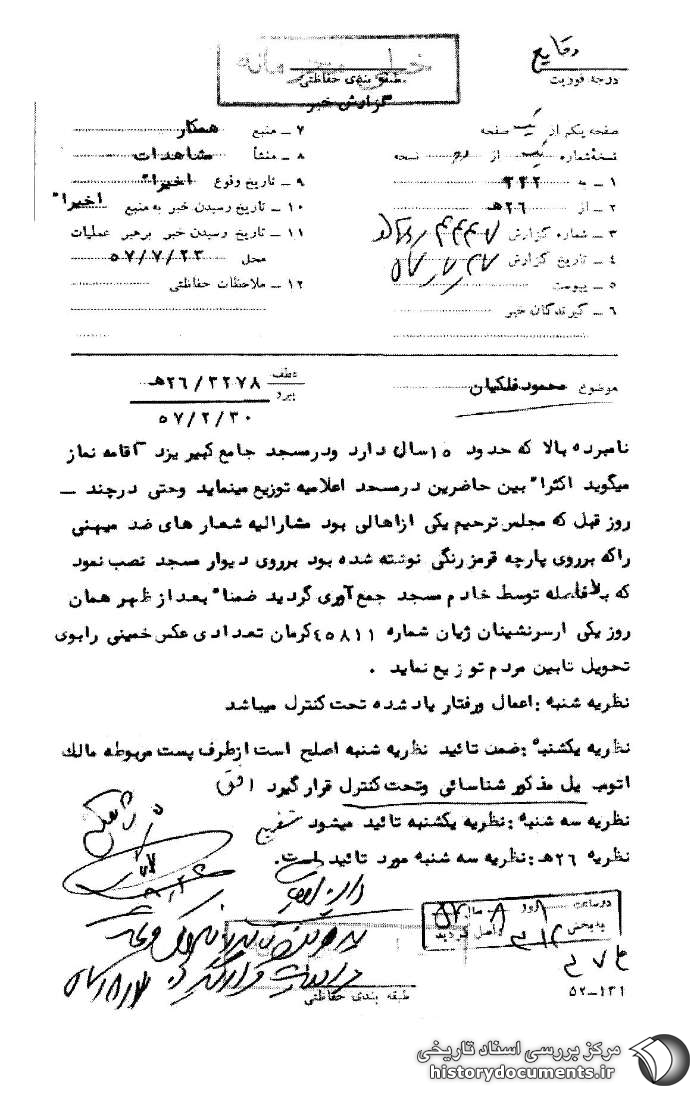 وقایع
درجه فوریت
خیلی محرمانه
طبقه بندی حفاظتی
گزارش خبر
صفحه یکم از یک صفحه
نسخه شماره یک از دو نسخه
۱ ـ به ۳۳۲
۲ ـ از ۲۶هـ
۳ ـ شماره گزارش
۴ ـ تاریخ گزارش
۵ ـ پیوست
۶ ـ گیرندگان خبر
۷ ـ منبع همکار
۸ ـ منشأ مشاهدات
۹ ـ تاریخ وقوع اخیراً
۱۰ ـ تاریخ رسیدن خبر به منبع اخیراً
۱۱ ـ تاریخ رسیدن خبر برهبر عملیات
محل ۵۷/۷/۲۳
۱۲ ـ ملاحظات حفاظتی
موضوع محمود فلکیان
عطف
پیرو
۲۶/۳۲۷۸هـ
۵۷/۲/۳۰
نامبرده بالا که حدود ۱۵سال دارد ودرمسجد جامع کبیر یزد آقامه نماز
میگوید اکثراً بین حاضرین درمسجد اعلامیه توزیع مینماید وحتی درچند ـ
روز قبل که مجلس ترحیم یکی ازاهالی بود مشارالیه شعار های ضد میهنی
راکه برروی پارچه قرمز رنگی نوشته شده بود برروی دیوار مسجد نصب نمود
که بلافاصله توسط خادم مسجد جمع آوری گردید ضمناً بعد از ظهر همان
روز یکی ازسرنشینان ژیان شماره ۴۵۸۱۱کرمان تعدادی عکس خمینی رابوی
تحویل تابین مردم توزیع نماید .
نظریه شنبه :اعمال ورفتار یاد شده تحت کنترل میباشد
نظریه یکشنبه :ضمن تائید نظریه شنبه اصلح است ازطرف پست مربوطه مالک
اتومبیل مذکور شناسائی وتحت کنترل قرار گیرد افق
نظریه سه شنبه :نظریه یکشنبه تائید میشود
نظریه ۲۶هـ :نظریه سه شنبه مورد تائید است.
در ساعت روز ۸ سال ۵۷
بدبخش ۳۱۲ واصل گردید
طبقه بندی حفاظتی
۵۲ـ۱۳۱
مرکز بررسی اسناد تاریخی
historydocuments.ir